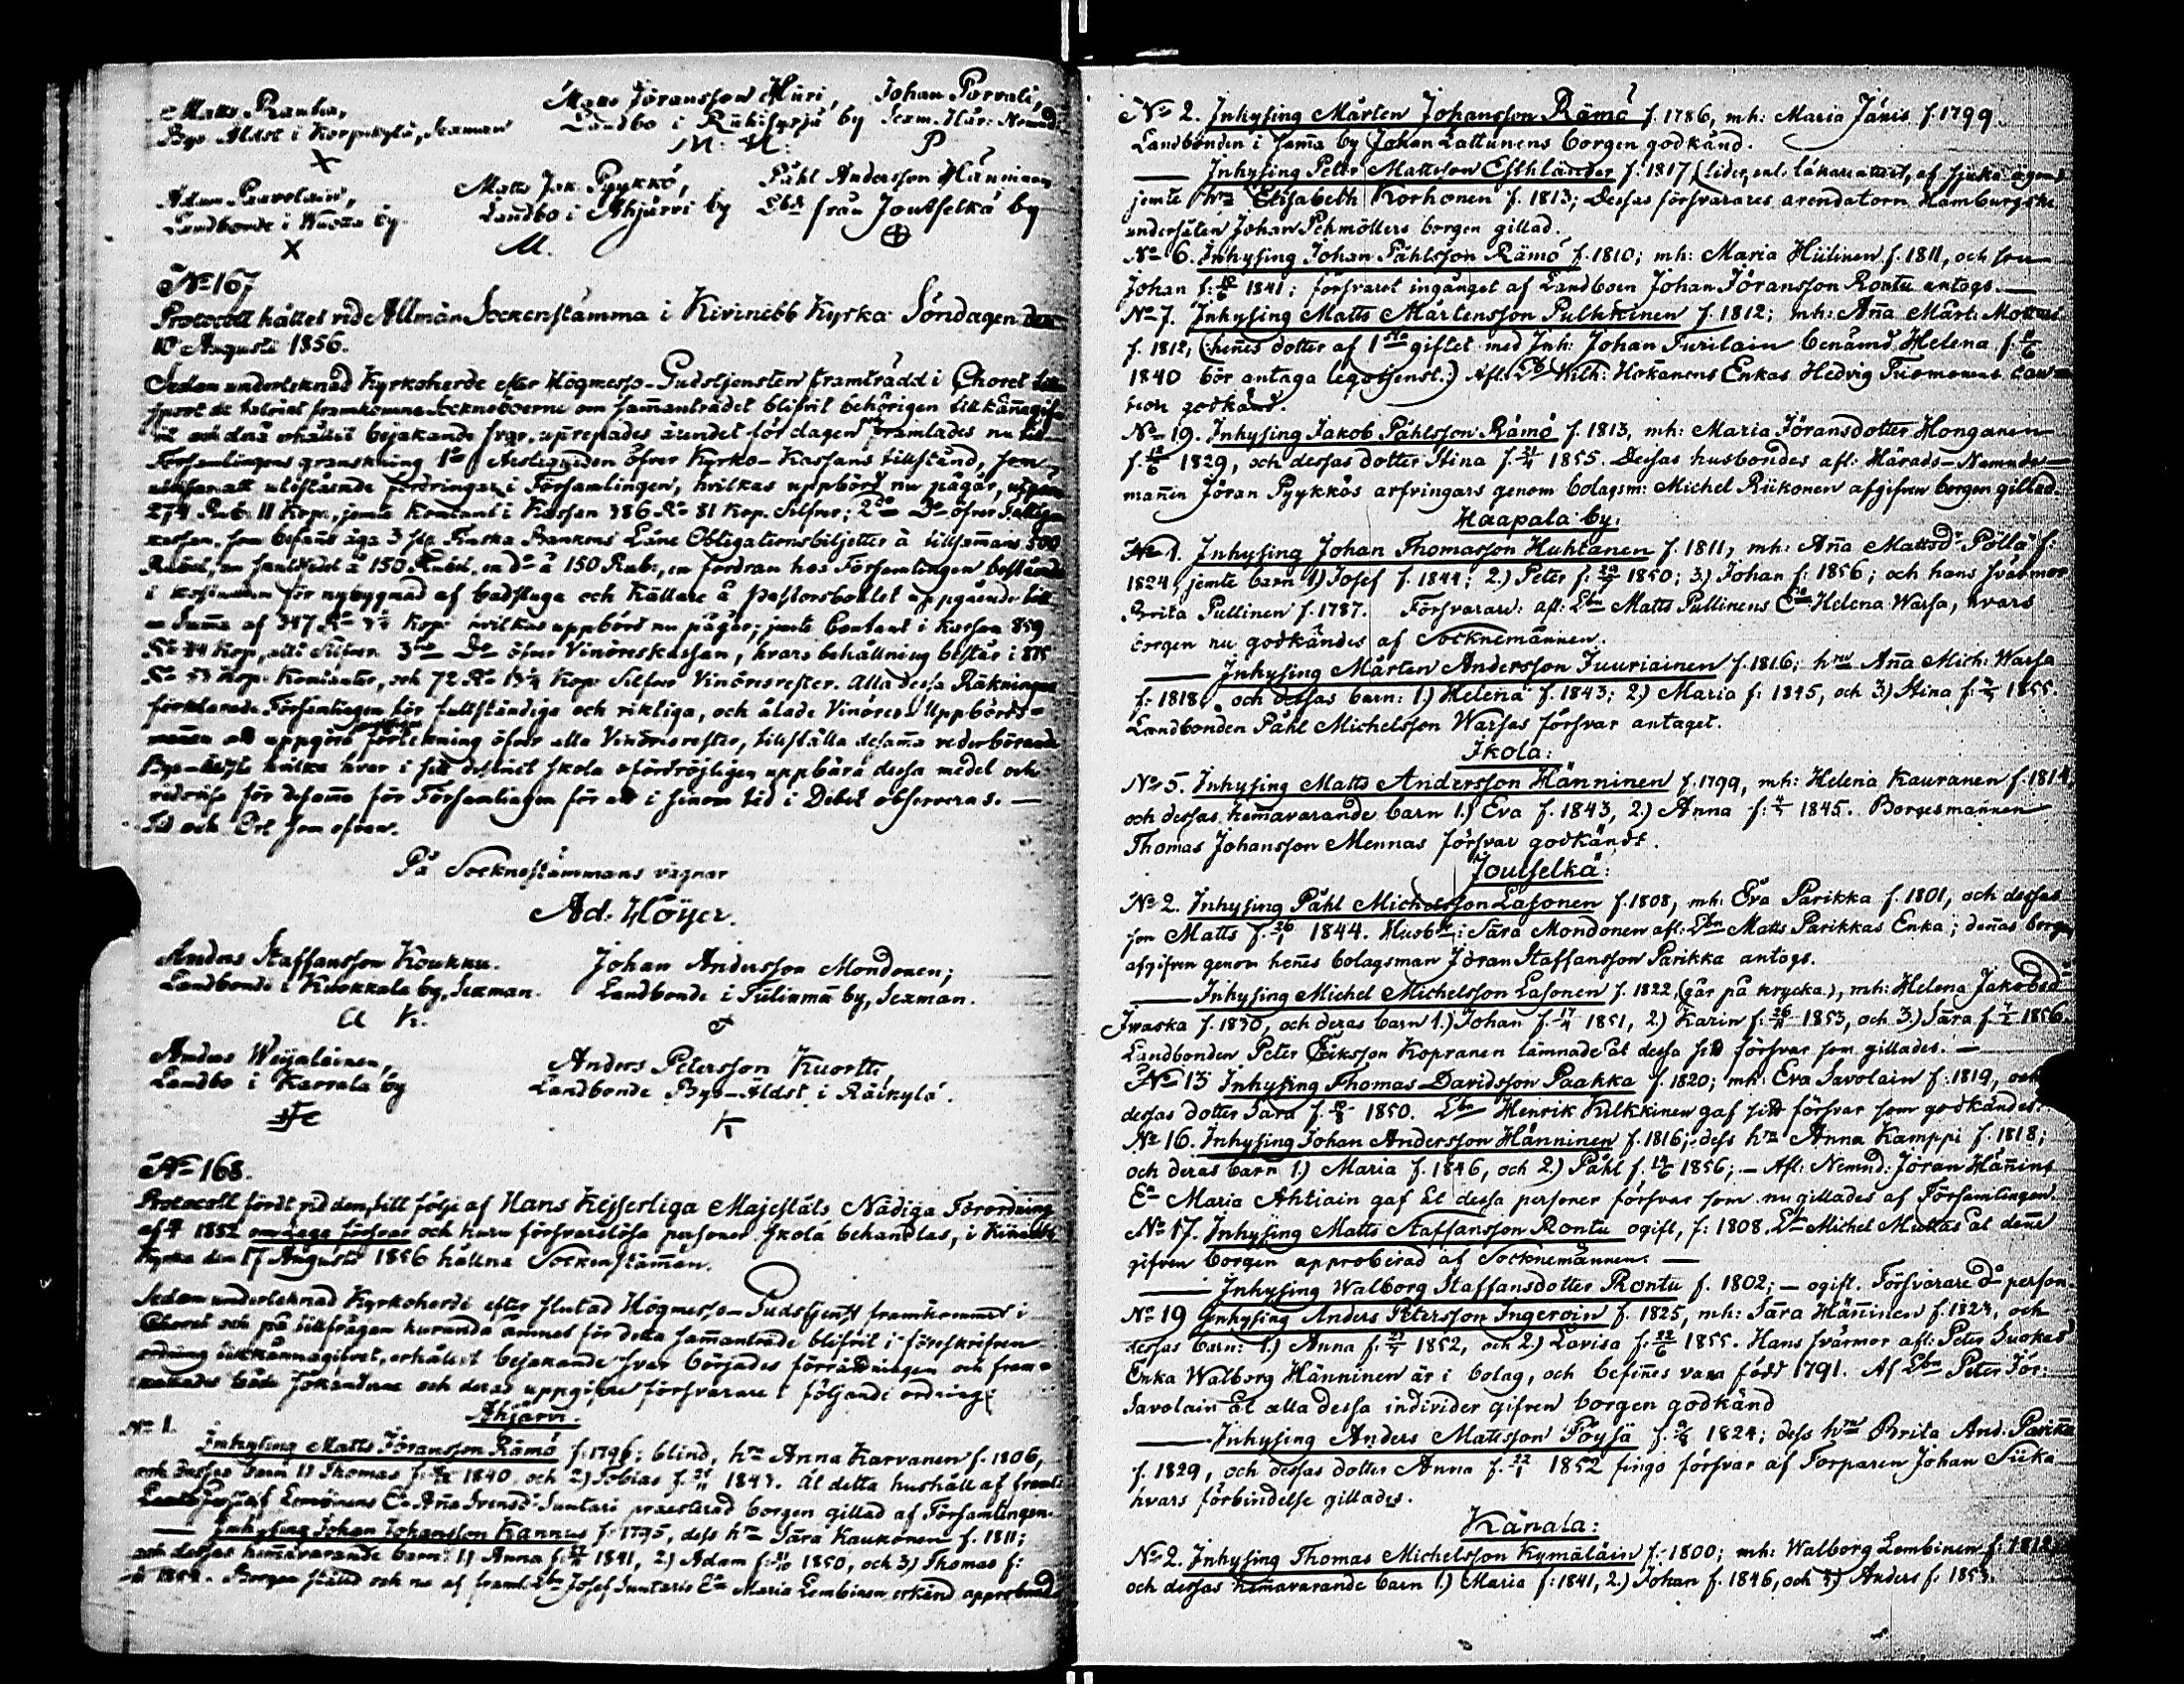 Matts Rautia, Matts Jöransson Hüri, Johan Porvali,
Bys Äldst i Korpikylä, Sexman Landbo i Riihisyrjä by Sexm. Här: Nemnd:
X M. H. P
Adam Paavolain, Matts Jak. Pyykkö, Påhl Andersson Hänninen
Landbonde i Wuotta by. Landbo i Ahjärvi by Lbde från Joutselkä by
X M. ⊕
No 167
Protocoll hållet vid Allmän Sockenstämma i Kivinebb Kyrka Söndagen den
10 Augusti 1856.
Sedan undertecknad Kyrkoherde efter Högmesso-Gudstjensten framträdd i Choret
de talrikt framkomne Sockneboerne om sammanträdet blifvit behörigen tillkännagif-
vit och derå erhållit bejakande svar, uprepades ärendet för dagen framlades nu till
Församlingens granskning 1o Redogörelsen öfver Kyrko-Kassans tillstånd, som
utestående fordringar i Församlingen, hvilkas uppbörd nu pågår, utgöra
274 Rub. 11 Kop., jemte Kontant i Kassan 386 Ro 81 Kop. Silfver; 2do Do öfver Fattig-
kassan, som befans äga 3 Finska Bankens Låne Obligationsbiljetter à tillsammans 500
Rubel, à 150 Rubel, en do à 150 Rub:, en fordran hos Församlingen bestående
i för nybygnad af badstuga och Källare å pastorsbolet uppgående till
en Summa af 347 Ro Kop: hvilkas uppbörd nu pågår; jemte Contant i Kassan 859
Ro 44 Kop, allt Silfver. 3tio Do öfver Vinöreskassan, hvars behållning består i 875
Ro 53 Kop: Kontanter, och 72 Ro 13¼ Kop: Silfver Vinöresrester. Alla dessa Räkningar
förklarade Församlingen för fullständiga och riktiga, och ålade Vinöres Uppbörds-
männen att uppgöra förtekning öfver alla Vinöresrester, tillställa desamma vederbörande
Bys-Äldste hvilka hvar i sitt distrikt skola ofördröjligen uppbära dessa medel och
redovisa för desamma för Församlingen för att i sinom tid i Debet observeras. —
Tid och Ort som ofvan.
På Socknestämmans vägnar
Ad. Höijer.
Anders Staffansson Koukku. Johan Andersson Mondonen;
Landbonde i Kuokkala by, Sexman. Landbonde i Tülinmä by, Sexman.
A K.
Anders Weijalainen, Anders Petersson Kuortti
Landbo i Karrala by Landbonde Bys-Äldst i Räikylä.
No 168.
Protocoll fördt vid den, till följe af Hans Kejserliga Majestäts Nådiga Förordning
af 1852 om laga försvar och huru försvarslösa personer skola behandlas, i Kivinebb
Kyrka den 17 Augusti 1856 hållna Sockenstämman.
Sedan undertecknad Kyrkoherde efter slutad Högmesso-Gudstjenst framkommit i
Choret och på tillfrågan huruvida ämnet för detta sammanträde blifvit i föreskrifven
ordning tillkännagifvet, erhållit bejakande svar börjades förrättningen och fram-
kallades både sökanderne och deras uppgifne försvarare i följande ordning:
Ahjärvi.
No 1. Inhysing Matts Jöransson Rämö f. 1796; blind, hru Anna Karvanen f. 1806,
och dessas barn 1) Thomas f. 1840, och 2) Tobias f. 1843. Åt detta hushåll af framl.
Gustaf Enka Anna Svensd: Suntari præsterad borgen gillad af Församlingen.
— Inhysing Johan Johansson Kannus f. 1795, dess hru Sara Kaukonen f. 1811;
och dessas hemmavarande barn: 1) Anna f. 1841, 2) Adam f. 1850, och 3) Thomas f.
1854. Borgen ställd och nu af framl. Lbn Josef Suntaris Ea Maria Lembinen erkänd approberad
No 2. Inhysing Mårten Johansson Rämö f. 1786, mh: Maria Jänis f. 1799.
Landbonden i samma by Johan Lattunens borgen godkänd.
— Inhysing Peter Mattsson Esthländer f. 1817 (lider, enl. läkareattest, af sjuka ögon)
jemte hru Elisabeth Korhonen f. 1813; Dessas försvarares arendatorn Hamburgske
undersåten Johan Schmöllers borgen gillad.
No 6. Inhysing Johan Påhlsson Rämö f. 1810; mh: Maria Hülinen f. 1811, och son
Johan f: 1841; försvaret ingånget af Landboen Johan Jöransson Rontu antogs. —
No 7. Inhysing Matts Mårtensson Pulkkinen f. 1812; mh: Anna Märt: Mottus
f. 1812, (hennes dotter af 1sta giftet med Inh: Johan Turilain benämd Helena f.
1840 bör antaga legotjenst.) Afl. Lb Wilh: Hokanens Enkas Hedvig Tuomanens cau-
tion godkänd.
No 19. Inhysing Jakob Påhlsson Rämö f. 1813, mh: Maria Jöransdotter Honganen
f. 1829, och dessas dotter Stina f. 1855. Dessas husbondes afl: Härads-Nemnde-
mannen Jöran Pyykkös arfvingars genom bolagsm: Michel Riikonen afgifven borgen gillad.
Haapala by:
No 1. Inhysing Johan Thomasson Huhtanen f. 1811, mh: Anna Mattsdr Pöllä f:
1824, jemte barn 1) Josef f. 1844; 2) Peter f: 1850; 3) Johan f: 1856; och hans svärmor
Brita Pullinen f. 1787. Försvarare: afl: Lbn Matts Pullinens Ea Helena Warsa, hvars
borgen nu godkändes af Socknemännen.
— Inhysing Mårten Andersson Juuriainen f. 1816; hru Anna Mich: Warsa
f: 1818, och dessas barn: 1.) Helena f. 1843; 2) Maria f: 1845, och 3) Stina f: 1855.
Landbonden Påhl Michelsson Warsas försvar antaget.
Ikola:
No 5. Inhysing Matts Andersson Hänninen f. 1799, mh: Helena Kauranen f. 1814
och dessas hemmavarande barn 1.) Eva f. 1843, 2.) Anna f: 1845. Borgesmannen
Thomas Johansson Mennas försvar godkändt.
Joutselkä:
No 2. Inhysing Påhl Michelsson Lasonen f. 1808, mh: Eva Parikka f. 1801, och dessas
son Matts f. 26/1 1844. Husb: Sara Mondonen afl: Lbn Matts Parikkas Enka; dennas borgen
afgifven genom hennes bolagsman Jöran Staffansson Parikka antogs.
— Inhysing Michel Michelsson Lasonen f. 1822, (går på krycka), mh: Helena Jakobsdr
Iwaska f. 1830, och deras barn 1.) Johan f. 17/4 1851, 2.) Karin f: 1853, och 3.) Sara f 1856.
Landbonden Peter Eriksson Kopranen lämnade åt dessa sitt försvar som gillades. —
No 13 Inhysing Thomas Davidsson Paakka f. 1820; mh: Eva Savolain f: 1819, och
dessas dotter Sara f. 1850. Lbn Henrik Kilkkinen gaf sitt försvar som godkändes.
No 16. Inhysing Johan Andersson Hänninen f. 1816; dess hru Anna Kamppi f. 1818;
och deras barn 1) Maria f. 1846, och 2) Påhl f. 1856; — Afl: Nemnd: Jöran Hännins
Ea Maria Ahtiain gaf åt dessa personer försvar som nu gillades af Församlingen.
No 17. Inhysing Matts Staffansson Rontu ogift, f: 1808. Lbn Michel Muttas åt denne
gifven borgen approberad af Socknemännen. —
— Inhysing Walborg Staffansdotter Rontu f. 1802; — ogift. Försvarare do person
No 19 Inhysing Anders Petersson Ingeroin f. 1825, mh: Sara Hänninen f. 1824, och
dessas barn: 1.) Anna f: 1852, och 2.) Lovisa f: 1855. Hans svärmor afl: Peter Suokas
Enka Walborg Hänninen är i bolag, och befinnes vara född 1791. Af Lbn Peter Jör:
Savolain åt alla dessa individer gifven borgen godkänd
— Inhysing Anders Mattsson Pöysä f. 1824; dess hru Brita And. Parikka
f. 1829, och dessas dotter Anna f. 22/1 1852 fingo försvar af Torparen Johan Siika
hvars förbindelse gillades.
Känala:
No 2. Inhysing Thomas Michelsson Kymäläin f: 1800; mh: Walborg Lembinen f: 1812,
och dessas hemmavarande barn 1.) Maria f: 1841, 2.) Johan f. 1846, och 3) Anders f: 1853.